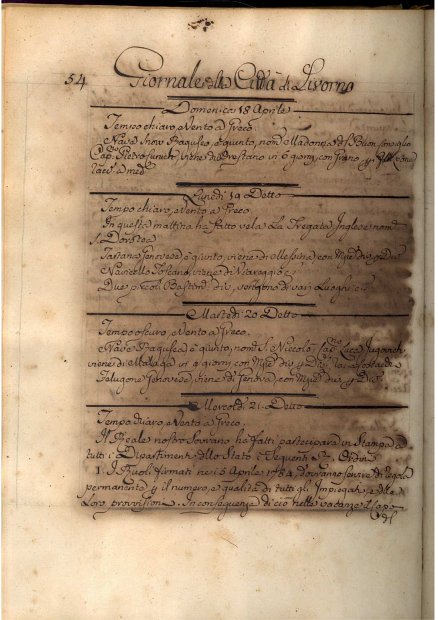 54
Giornale della Città di Livorno
Domenica 18 Aprile
Tempo chiaro, e Vento a Greco
Nave Ragusea, è giunto, nom. Madonna del Buon consiglio
Cap.no Pietro viene da Oristano in 6 giorni con Grano
Lunedì 19 Detto
Tempo chiaro, e Vento a Greco
In questa mattina ha fatto vela La Fregata Inglese nom.
Tartana Genovese è giunto, viene di Messina con
Navicello Toscano, viene di
Due piccoli Bastim.ti div. vengono di vari Luoghi
Martedì 20 Detto
Tempo oscuro, e Vento a Greco
Nave Ragusea è giunto, nom. S. Niccola, Cap.no Luca
viene di Malaga in giorni con
Felugone Genovese, viene di Genova, con
Mercoldì 21 Detto
Tempo chiaro, e Vento a Greco
Il Reale nostro Sovrano ha fatti partecipare in Stampa a
tutti i Dipartimenti dello Stato i seguenti Ordini
1. I Ruoli firmati ne' 5 Aprile 1784 dovranno servire di regola
permanente p il numero, e qualità di tutti gli Impiegati, e
Loro provvisioni. In conseguenza di ciò nelle vacanze il Capo